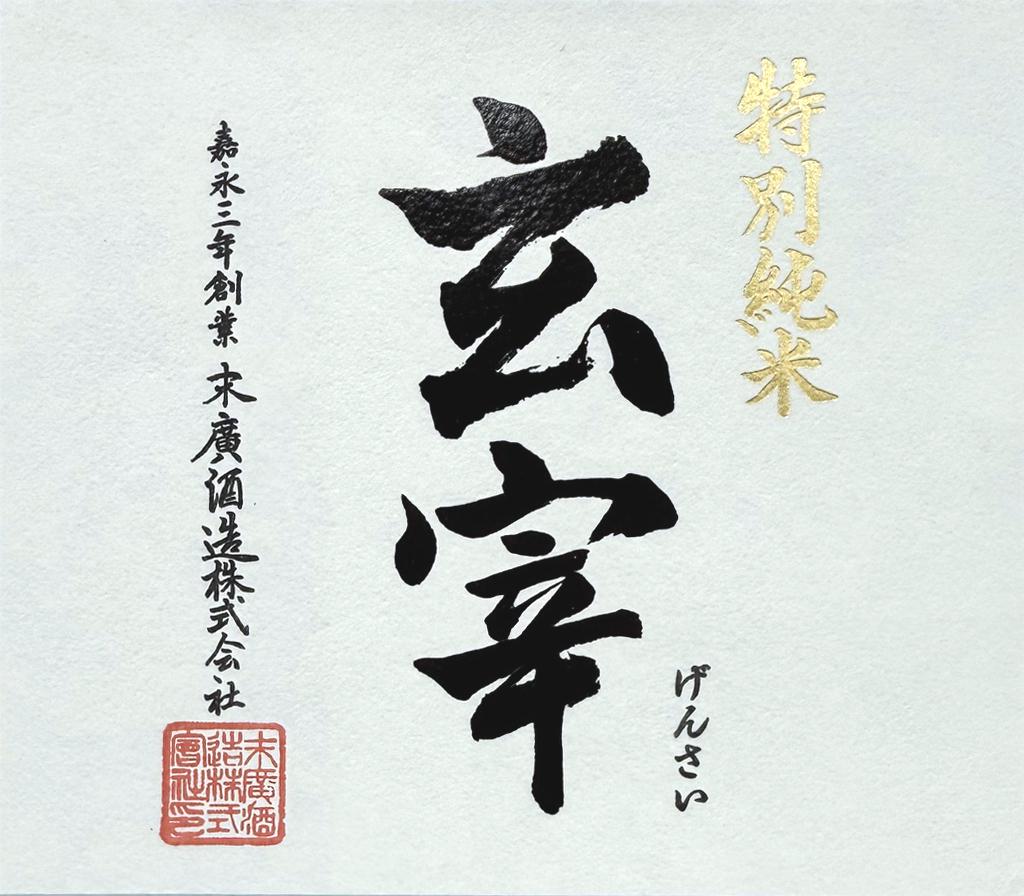 特別純米
玄宰
げんさい
嘉永三年創業 末廣酒造株式会社
末廣酒
造株式
會社印